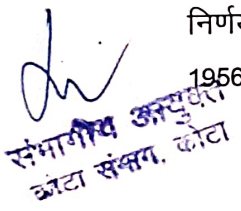 निर्ण
1956
संभागीय आयुक्त
कोटा संभाग, कोटा